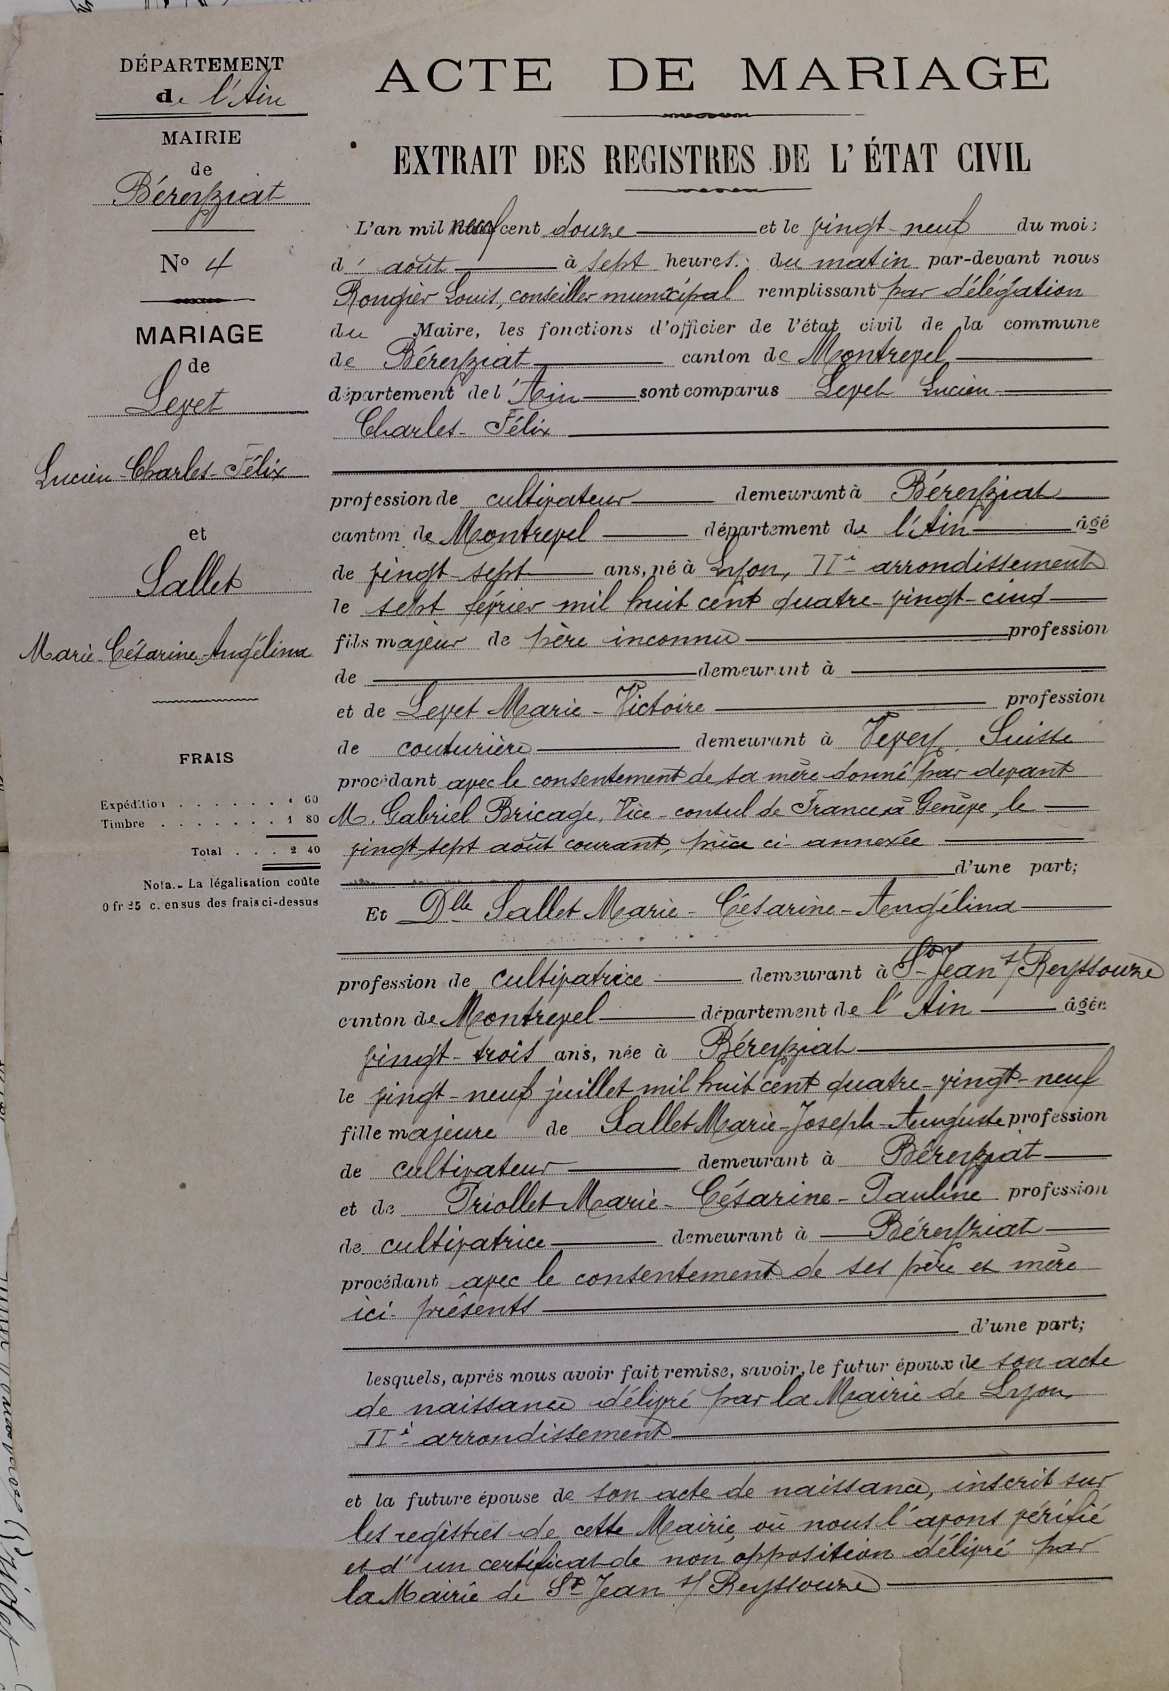 DÉPARTEMENT
de l'Ain
MAIRIE
de
Béreyziat
No 4
MARIAGE
de
Levet
Lucien-Charles-Félix
et
Sallet
Marie-Césarine-Angélina
FRAIS
Expédition . . . . . . . " 60
Timbre . . . . . . . 1 80
Total . . . 2 40
Nota.- La légalisation coûte
0 fr 25 c. en sus des frais ci-dessus
ACTE DE MARIAGE
EXTRAIT DES REGISTRES DE L'ÉTAT CIVIL
L'an mil neuf cent douze et le vingt-neuf du mois
d' août à sept heures du matin par-devant nous
Rongier Louis, conseiller municipal remplissant par délégation
du Maire, les fonctions d'officier de l'état civil de la commune
de Béreyziat canton de Montrevel
département de l'Ain sont comparus Levet Lucien
Charles-Félix
profession de cultivateur demeurant à Béreyziat
canton de Montrevel département de l'Ain âgé
de vingt-sept ans, né à Lyon, IIe arrondissement
le sept février mil huit cent quatre-vingt-cinq
fils majeur de père inconnu profession
de demeurant à
et de Levet Marie-Victoire profession
de couturière demeurant à Vevey, Suisse
procédant avec le consentement de sa mère donné par devant
M. Gabriel Bricage, Vice-consul de France à Genève, le
vingt-sept août courant, pièce ci-annexée
d'une part;
Et Dlle Sallet Marie-Césarine-Angélina
profession de cultivatrice demeurant à St-Jean s/ Reyssouze
canton de Montrevel département de l'Ain âgée
vingt-trois ans, née à Béreyziat
le vingt-neuf juillet mil huit cent quatre-vingt-neuf
fille majeure de Sallet Marie-Joseph-Auguste profession
de cultivateur demeurant à Béreyziat
et de Priollet Marie-Césarine-Pauline profession
de cultivatrice demeurant à Béreyziat
procédant avec le consentement de ses père et mère
ici présents
d'une part;
lesquels, aprés nous avoir fait remise, savoir, le futur époux de son acte
de naissance délivré par la Mairie de Lyon
IIe arrondissement
et la future épouse de son acte de naissance, inscrit sur
les registres de cette Mairie, où nous l'avons vérifié
et d'un certificat de non opposition délivré par
la Mairie de St Jean s/ Reyssouze